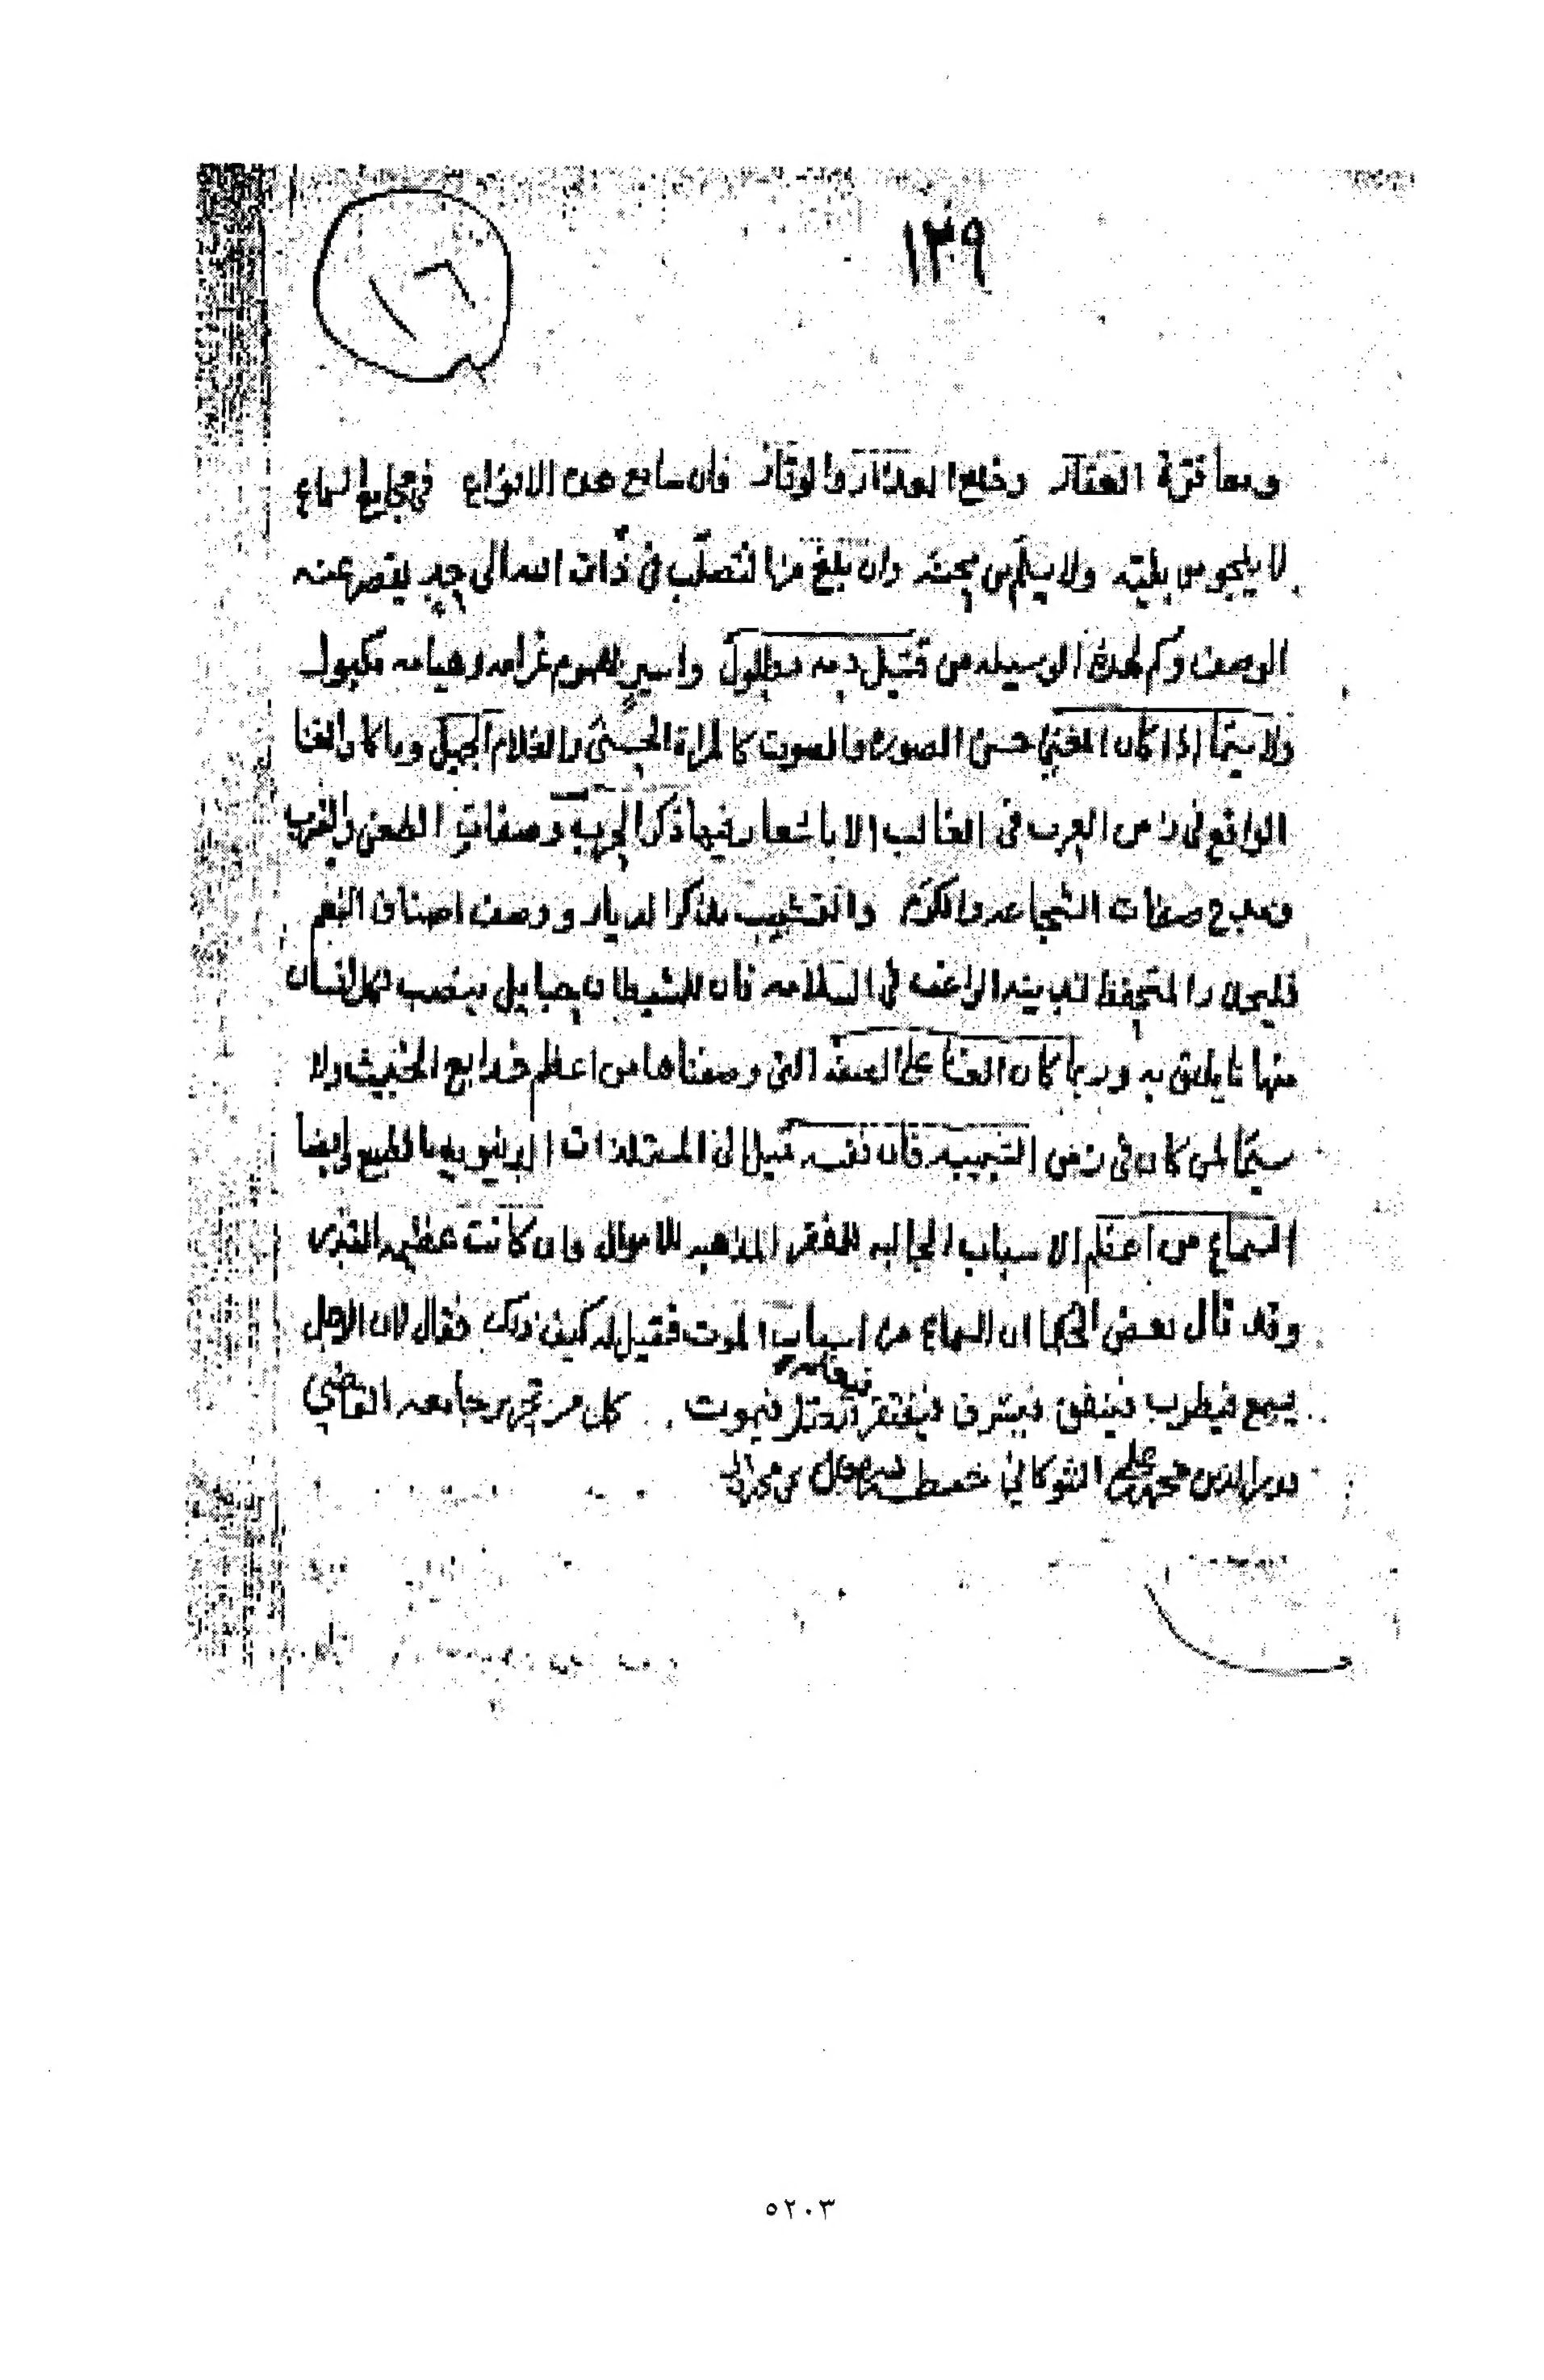 ١٣٩
ومعاقرة العقار وخلع العذار والوقار فان سامع هذه الانواع في مجامع السماع
لا ينجو من بليته ولا يسلم من محنته وان بلغ من التصلب في ذات الله الى حد يقصر عنه
الوصف وكم لهذه الوسيلة من قتيل دمه مطلول واسير بهموم غرامه وهيامه مكبول
ولا سيما اذا كان المغني حسن الصورة والصوت كالمراة الحسنى والغلام الجميل وما كان الغنا
الواقع في زمن العرب في الغالب الا باشعار فيها ذكر الحرب وصفات الطعن والضرب
ومدح صفات الشجاعه والكرم والتشبيب بذكر الديار ووصف اصناف النعم
فليحذر المتحفظ لدينه الراغب في السلامه فان للشيطان حبايل ينصب لكل انسان
منها ما يليق به وربما كان الغنا على الصفة التي وصفناها من اعظم خدايع الخبيث ولا
سيما لمن كان في زمن الشبيبه فان نفسه تميل الى المستلذات الدنيويه بالطبع وايضا
السماع من اعظم الاسباب الجالبه للفقر المذهبه للاموال وان كانت عظيمه القدر
وقد قال بعض الحكما ان السماع من اسباب الموت فقيل له كيف ذلك فقال لان الرجل
يسمع فيطرب فينفق فيسرف فيفتقر فيغتم فيعتل فيموت . كمل من تحرير جامعه القاضي
بدر الدين محمد بن علي الشوكاني
٥٢٠٣